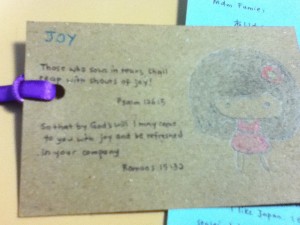 JOY
Those who sows in tears, shall
reap with shouts of joy!
Psalm 126:5
So that by God's will I may come
to you with joy and be refreshed
in your company
Romans 15:32
Mdm Fumie,
I like Japan. I